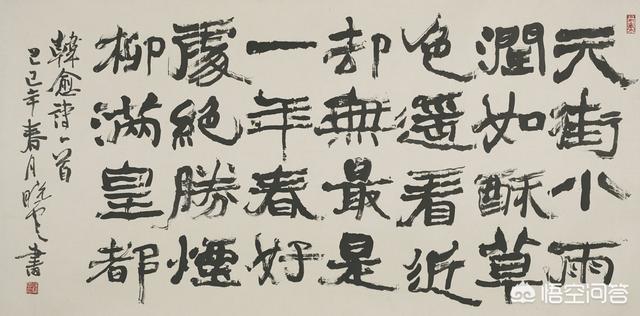 天街小雨
潤如酥草
色遥看近
却無最是
一年春好
處絕勝煙
柳滿皇都
韓愈詩一首
己巳年春月曉雲書
悟空问答